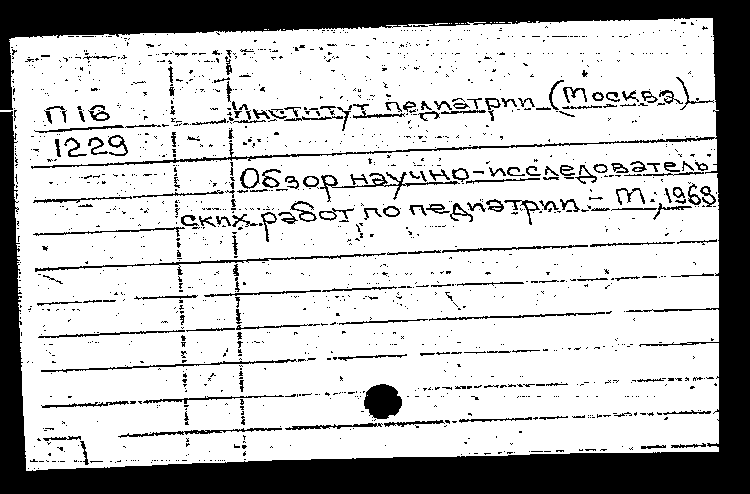 П 16
1229
Институт педиатрии (Москва).
Обзор научно-исследователь-
ских работ по педиатрии. – М., 1968